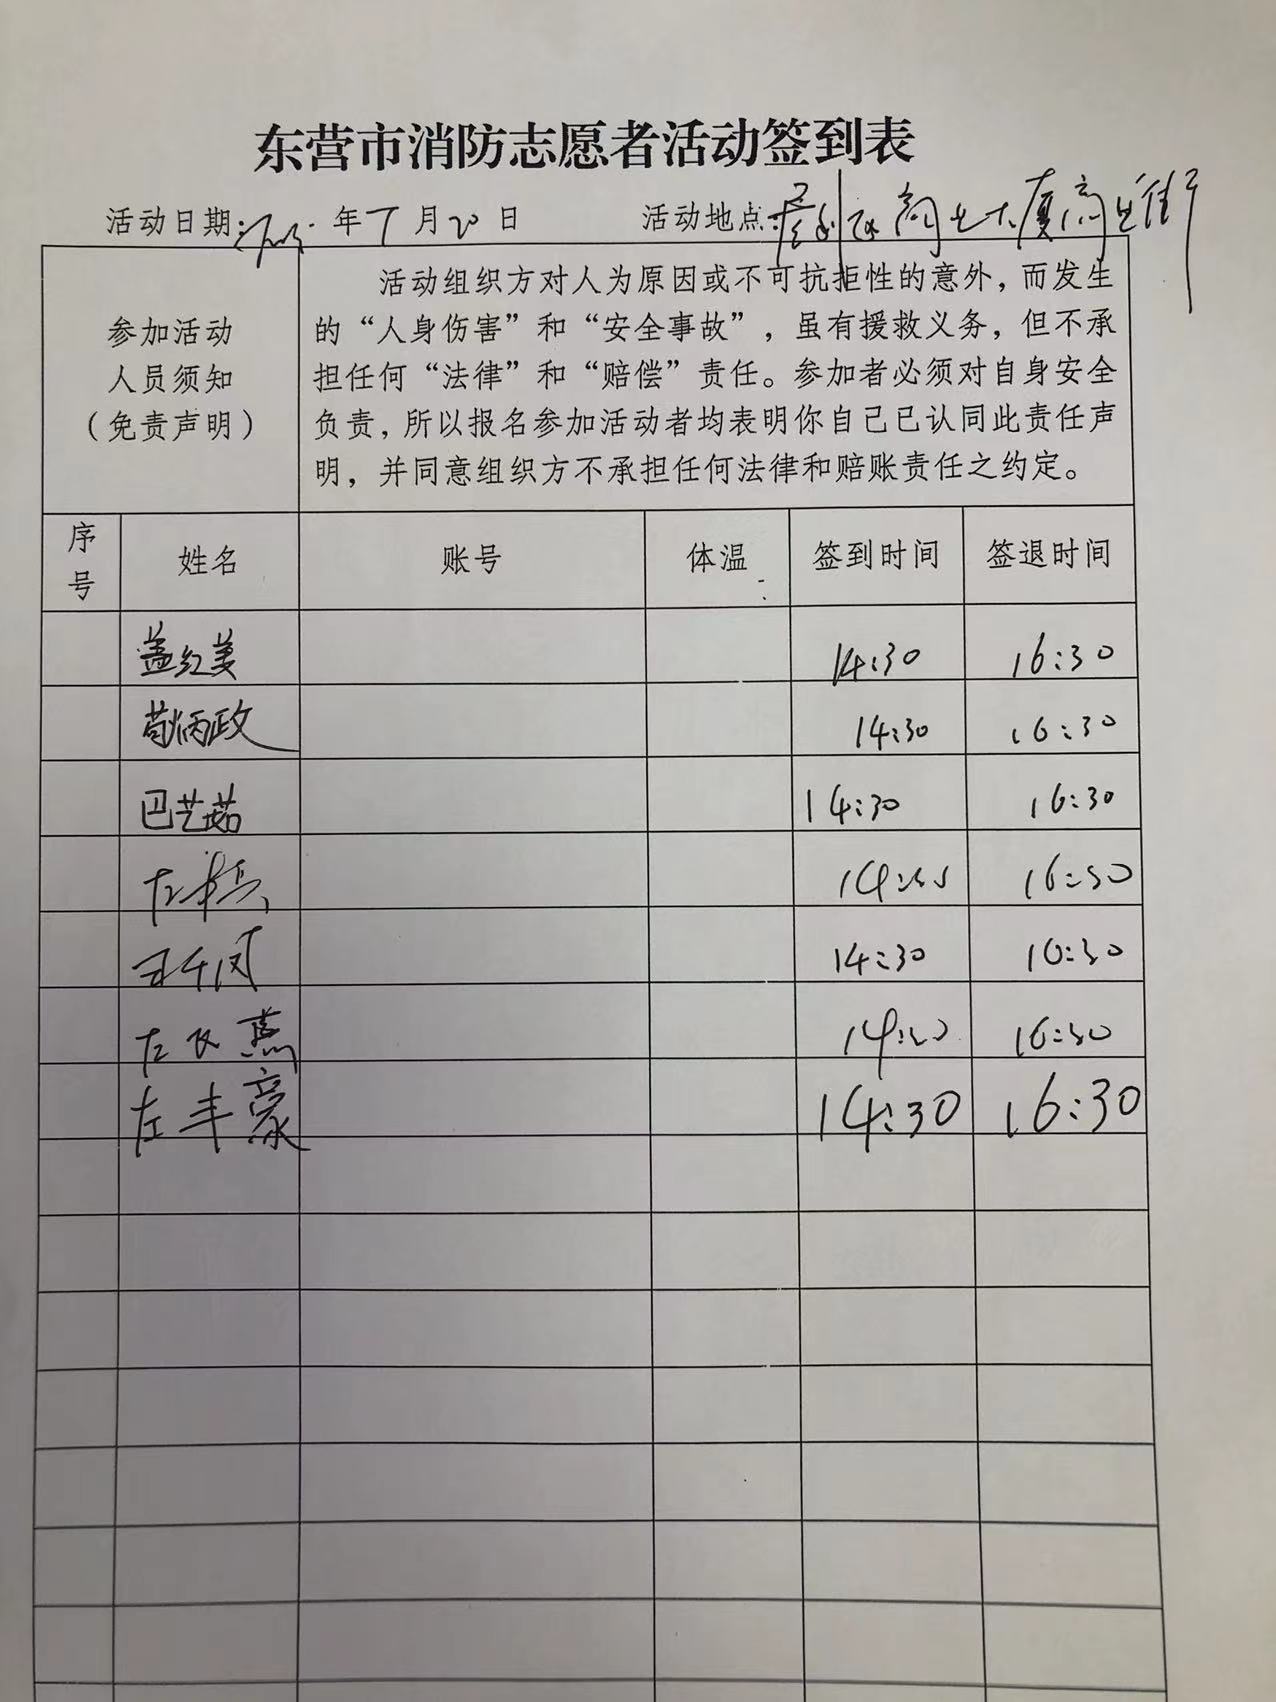 东营市消防志愿者活动签到表
活动日期: 年7月20日 活动地点: 利区商业大厦商业街
参加活动
人员须知
（免责声明）
活动组织方对人为原因或不可抗拒性的意外，而发生
的“人身伤害”和“安全事故”，虽有援救义务，但不承
担任何“法律”和“赔偿”责任。参加者必须对自身安全
负责，所以报名参加活动者均表明你自己已认同此责任声
明，并同意组织方不承担任何法律和赔账责任之约定。
序号 姓名 账号 体温 签到时间 签退时间
盖红美 14:30 16:30
苟炳政 14:30 16:30
巴艺茹 14:30 16:30
左 16:30
王千凤 14:30 16:30
左 燕 14:30 16:30
左丰豪 14:30 16:30